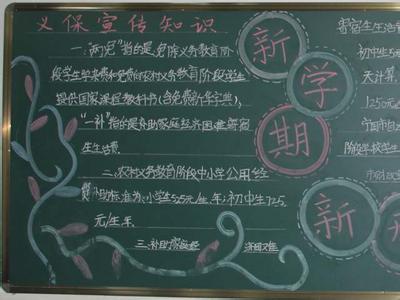 义保宣传知识
一.两免"指的是免除义务教育阶
段学生学杂费和免费向农村义务教育阶段学生
提供国家课程教科书(含免费新华字典),
"一补"指的是资助家庭经济困难寄宿
生生活费
二.农村义务教育阶段中小学公用经
费补助标准为:小学生525元/生.年;初中生725
元/生.年
三.补助家庭经
新
学
期
新
寄宿生生活
初中生5元
天计算,
1250元
阶段学校学生